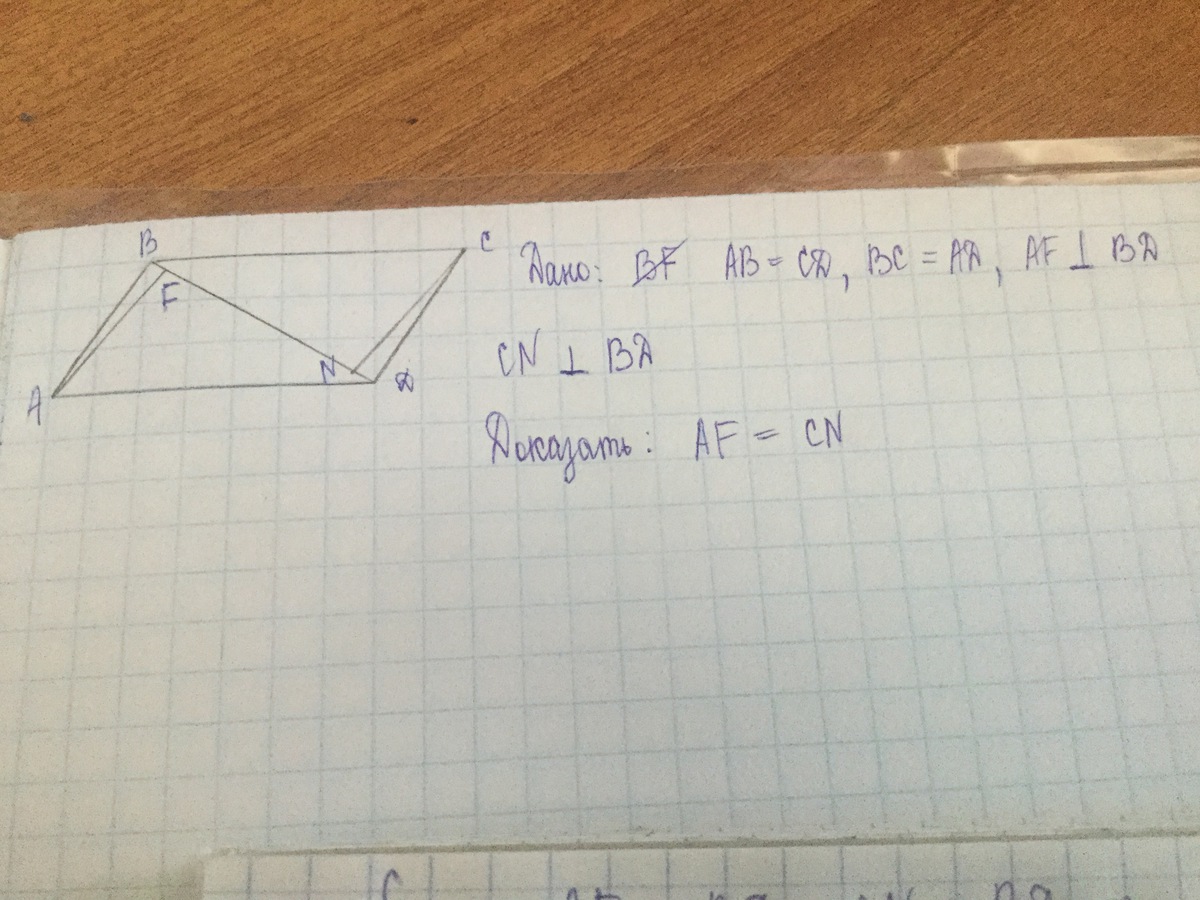 B
C
F
N
A
D
Дано: BF AB = CD, BC = AD, AF ⊥ BD
CN ⊥ BD
Доказать: AF = CN